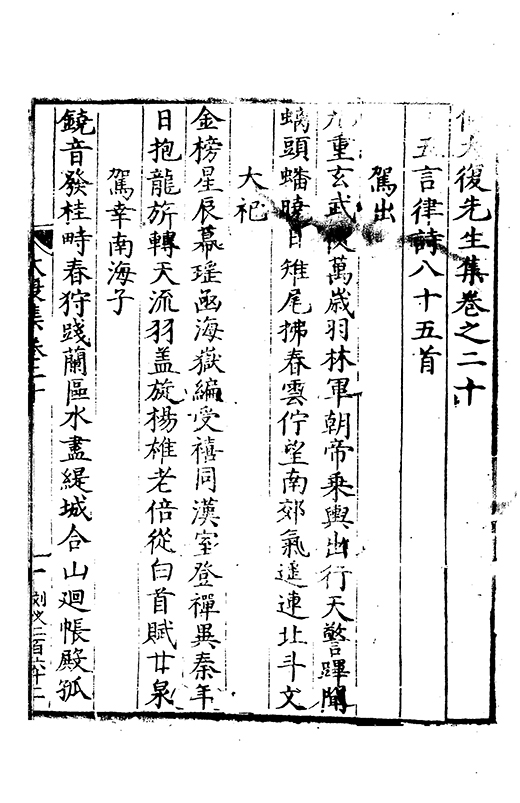 何大復先生集卷之二十
五言律詩八十五首
駕出
九重玄武萬歲羽林軍朝帝乘輿出行天警蹕聞
螭頭蟠曉日雉尾拂春雲佇望南郊氣遥連北斗文
大祀
金榜星辰幕瑶函海嶽編受禧同漢室登禪異秦年
日抱龍旂轉天流羽盖旋楊雄老倍從白首賦甘泉
駕幸南海子
鐃音發桂畤春狩踐蘭區水盡緹城合山廻帳殿孤
大復集卷二十
一
二百六十二